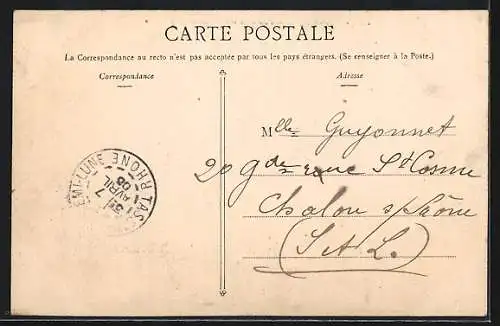 CARTE POSTALE
La Correspondance au recto n'est pas acceptée par tous les pays étrangers. (Se renseigner à la Poste.)
Correspondance
Adresse
Mlle Guyonnet
20 Gde rue St Cosme
Chalon s/ Saône
(S et L.)
TAS
EMI-LUNE
RHONE
7
AVRIL
08